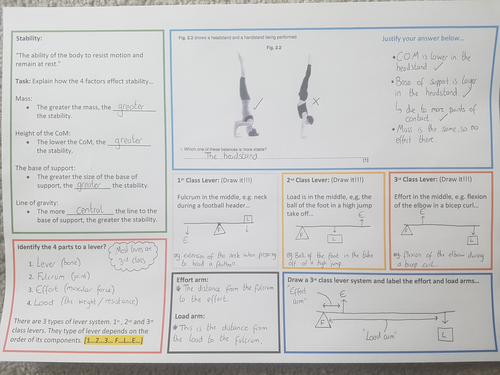 Stability:
"The ability of the body to resist motion and
remain at rest."
Task: Explain how the 4 factors effect stability...
Mass:
• The greater the mass, the greater
the stability.
Height of the CoM:
• The lower the CoM, the greater
the stability.
The base of support:
• The greater the size of the base of
support, the greater the stability.
Line of gravity:
• The more control the line to the
base of support, the greater the stability.
Fig. 2.2 shows a headstand and a handstand being performed.
Fig. 2.2
✓
X
Which one of these balances is more stable?
The headstand
[1]
Justify your answer below...
• COM is lower in the
headstand ✓
• Base of support is larger
in the headstand ✓
↳ due to more points of
contact ✓
• Mass is the same, so no
effect there.
1st Class Lever: (Draw it!!!)
Fulcrum in the middle, e.g. neck
during a football header...
L
E
F
eg. extension of the neck when preparing
to head a football
2nd Class Lever: (Draw it!!!)
Load is in the middle, e.g, the
ball of the foot in a high jump
take off...
E
F
L
eg. Ball of the foot in the take
off of a high jump.
3rd Class Lever: (Draw it!!!)
Effort in the middle, e.g. flexion
of the elbow in a bicep curl...
E
F
L
eg. flexion of the elbow during
a bicep curl.
Identify the 4 parts to a lever?
Most levers are
3rd class
1. Lever (bone)
2. Fulcrum (joint)
3. Effort (muscular force)
4. Load (the weight / resistance)
There are 3 types of lever system. 1st, 2nd and 3rd
class levers. They type of lever depends on the
order of its components. [1...2...3... F...L...E...]
Effort arm:
* The distance from the fulcrum
to the effort.
Load arm:
* This is the distance from
the load to the fulcrum.
Draw a 3rd class lever system and label the effort and load arms...
"Effort
arm"
E
F
"Load arm"
L